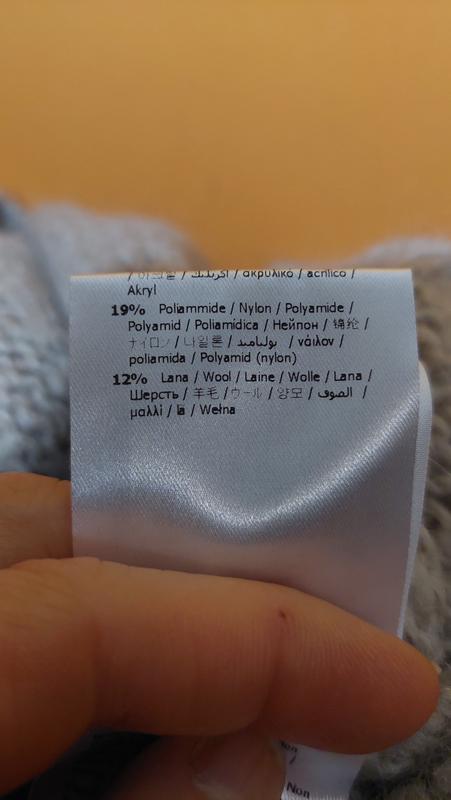 / 아크릴 / اكريليك / ακρυλικό / acrílico /
Akryl
19% Poliammide / Nylon / Polyamide /
Polyamid / Poliamídica / Нейлон / 锦纶 /
ナイロン / 나일론 / بولياميد / νάιλον /
poliamida / Polyamid (nylon)
12% Lana / Wool / Laine / Wolle / Lana /
Шерсть / 羊毛 / ウール / 양모 / الصوف /
μαλλί / lã / Wełna
Non